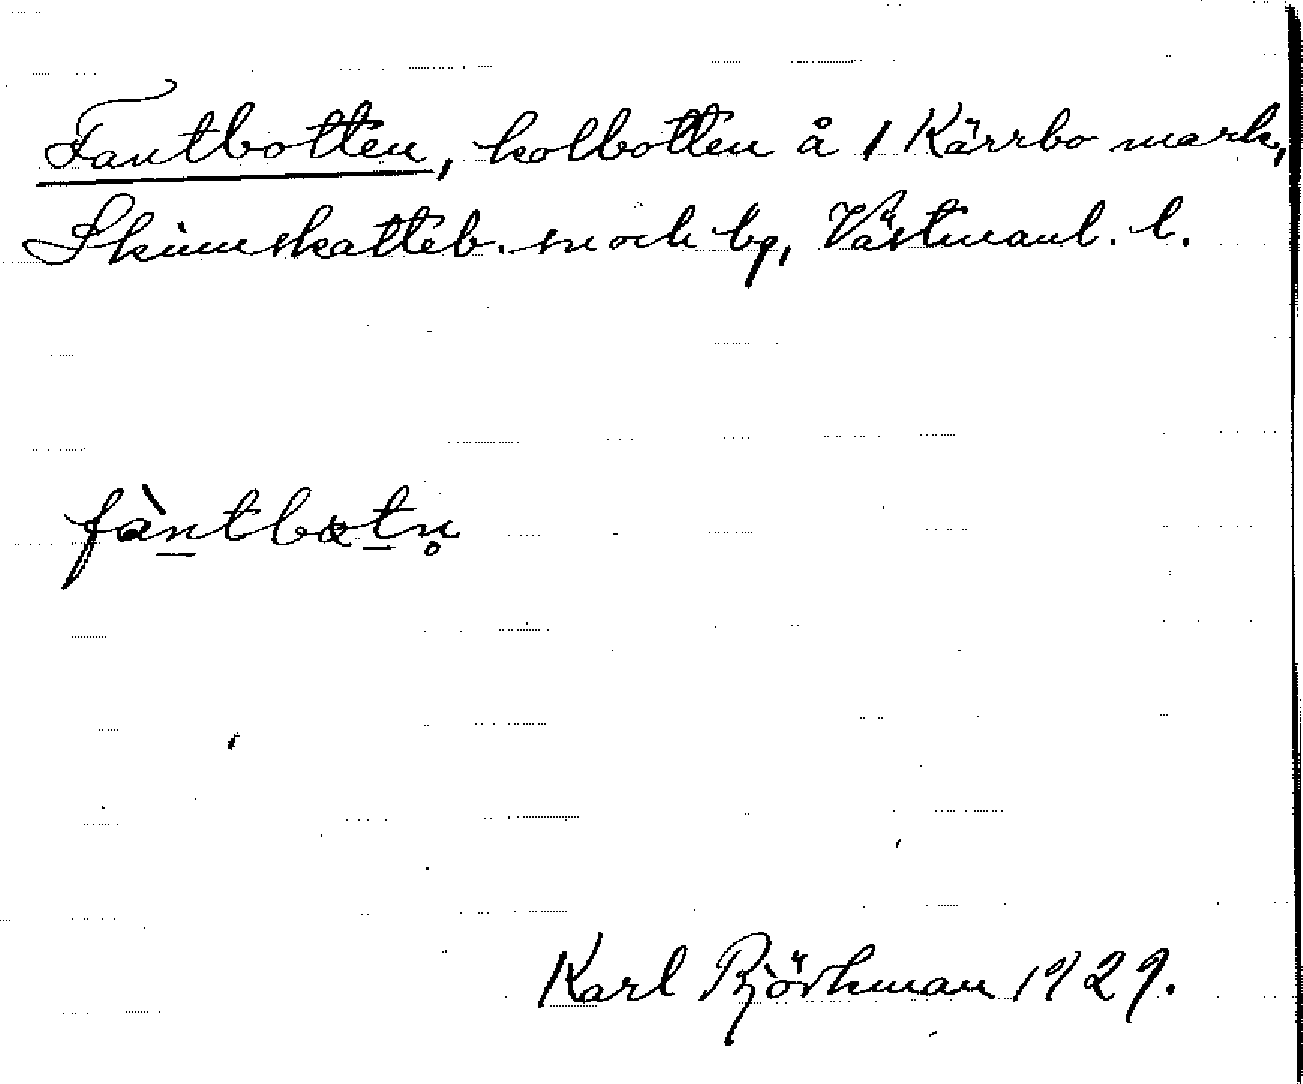 Fantbotten, kolbotten å 1 Kärrbo mark,
Skinnskatteb. sn och bg, Västmanl. l.
fàntbotn̥
Karl Björkman 1929.